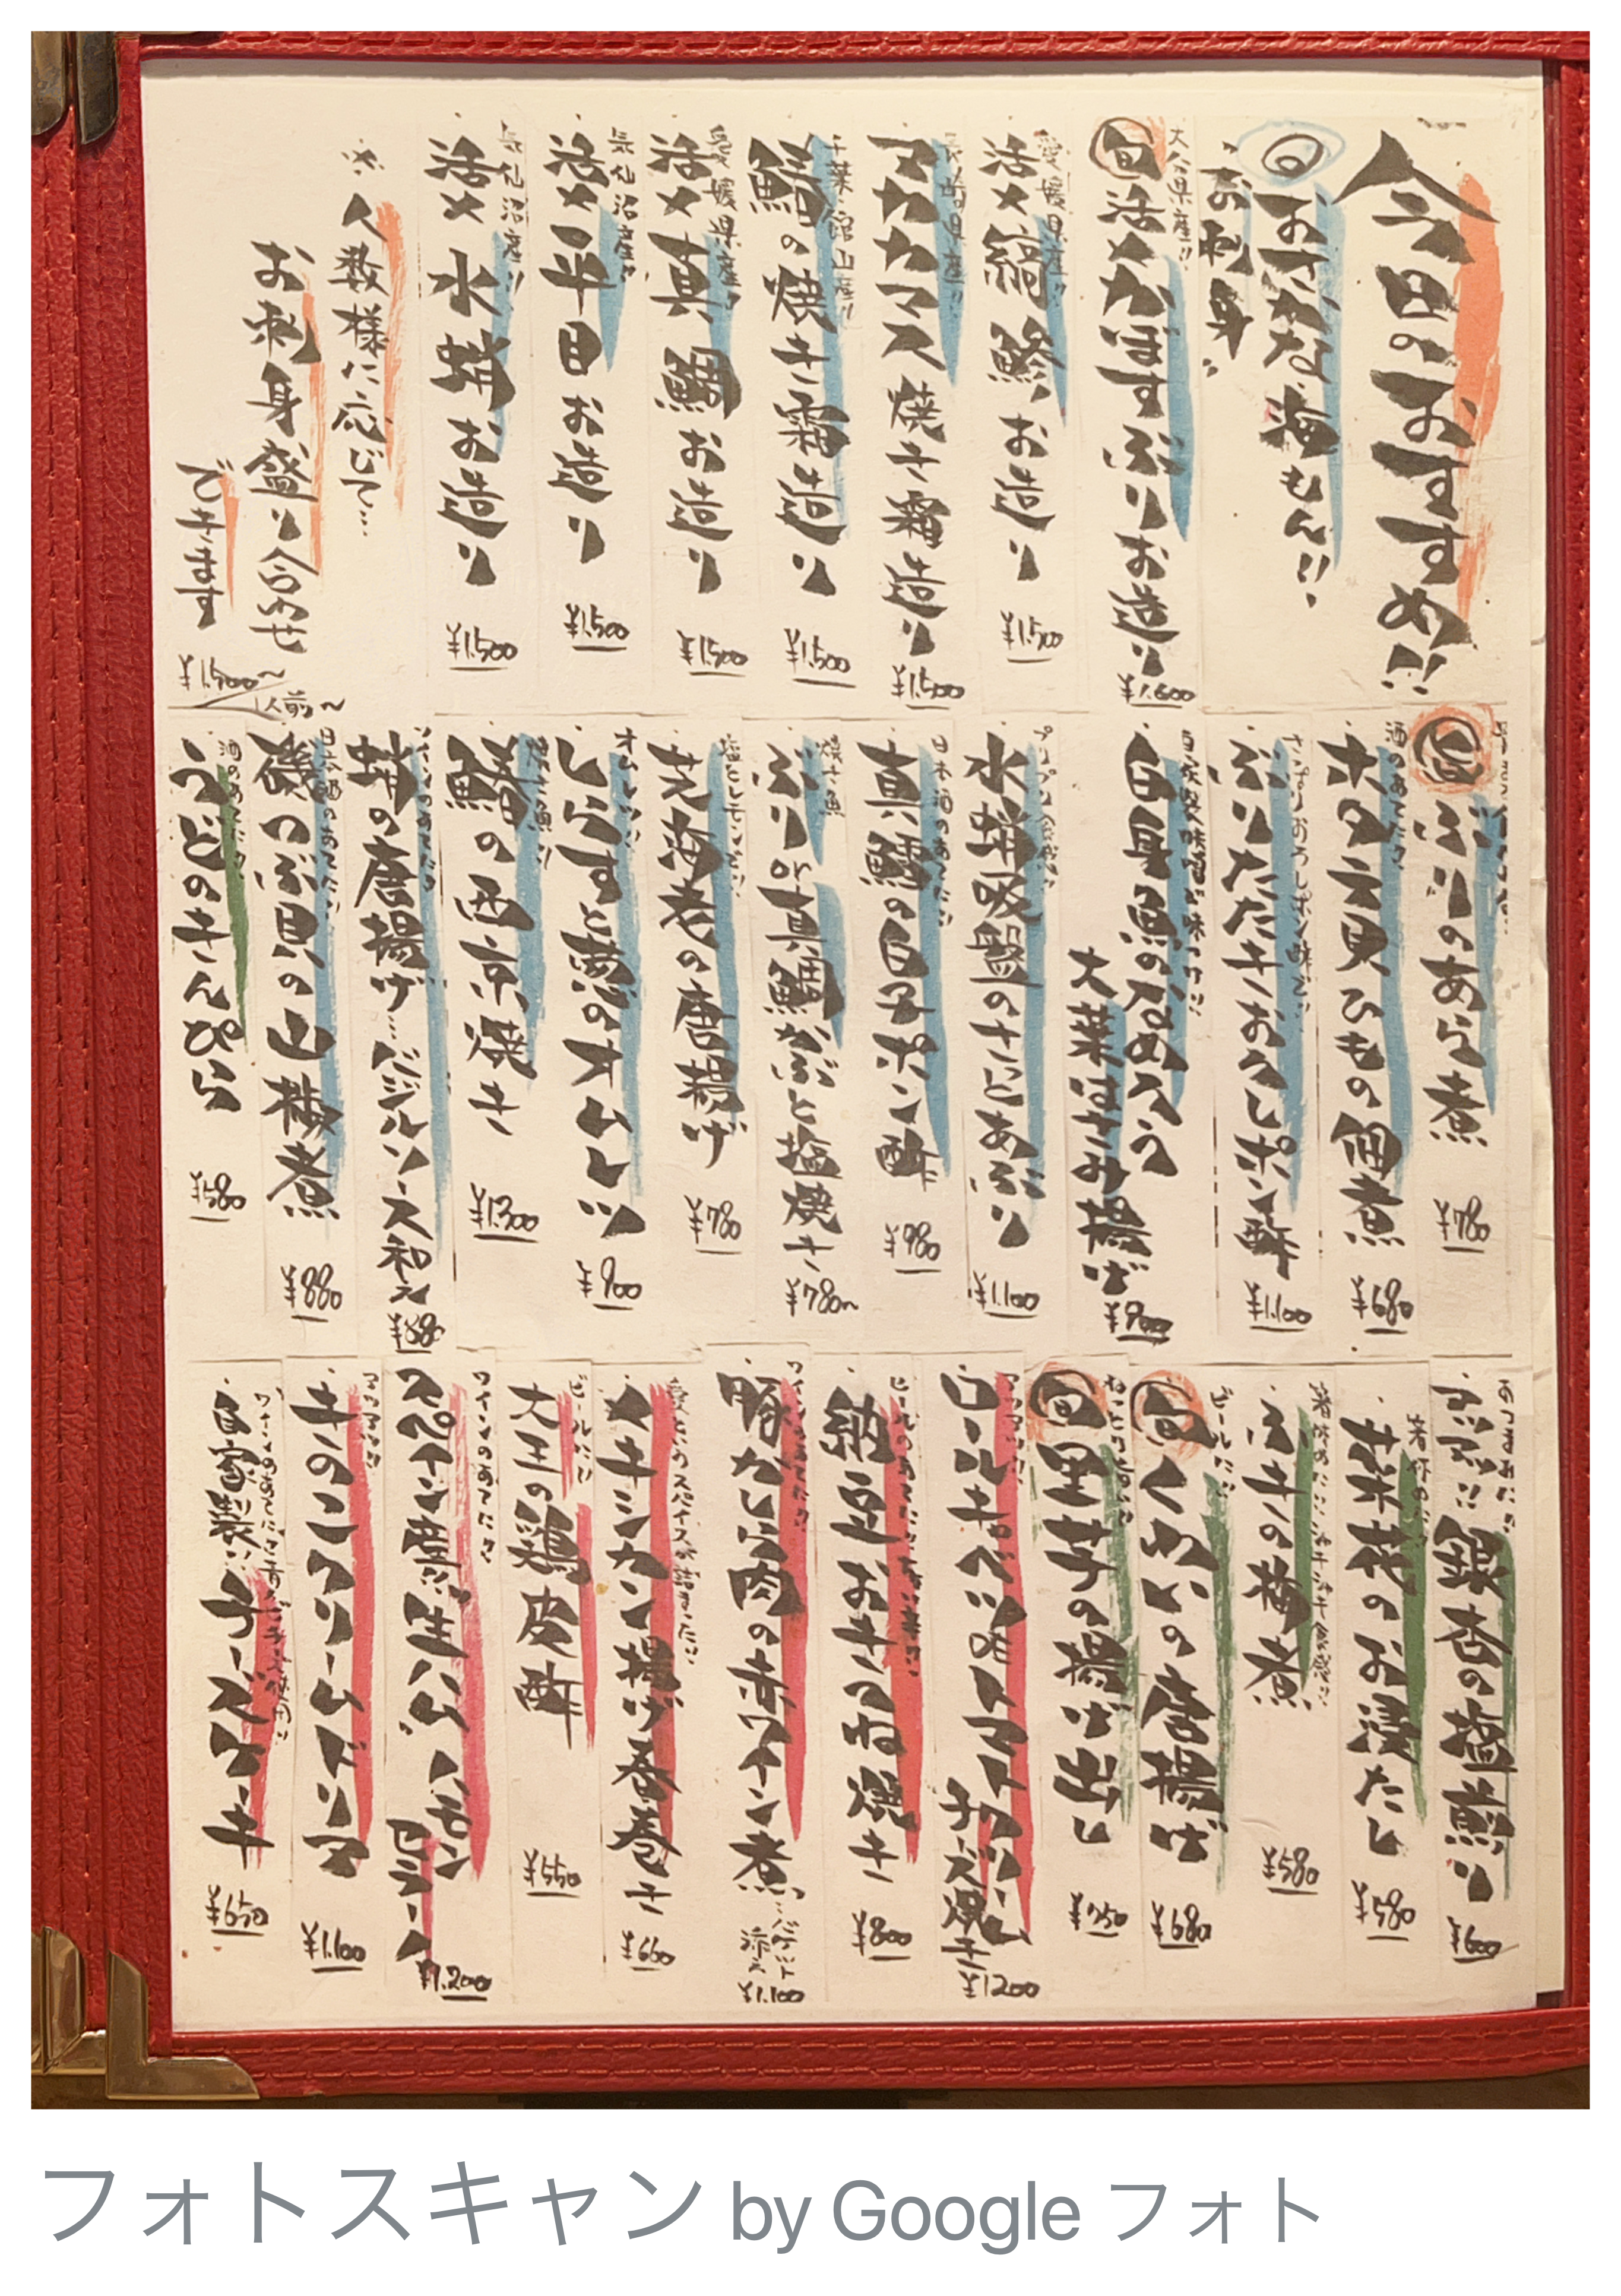 今日のおすすめ!!
旬 おさかな 海もん!!
・お刺身・
大分県産!!
旬 活〆かぼすぶりお造り ¥1,600
愛媛県産!!
活〆縞鯵お造り ¥1,500
長崎県産!!
アカカマス焼き霜造り ¥1,500
千葉・館山産!!
鰆の焼き霜造り ¥1,500
愛媛県産!!
活〆真鯛お造り ¥1,500
気仙沼産!!
活〆平目お造り ¥1,500
気仙沼産!!
活〆水蛸お造り ¥1,500
※人数様に応じて…
お刺身盛り合わせ
できます
¥1,500〜
1人前〜
旬 ぶりのあら煮 ¥780
酒のあてにク
ホタテ貝ひもの佃煮 ¥680
さっぱりおろしポン酢で!!
ぶりたたきおろしポン酢 ¥1,100
自家製味噌が味つけ!!
白身魚のなめろう
大葉はさみ揚げ ¥900
水蛸吸盤のさっとあぶり ¥1,100
日本酒のあてに!!
真鱈の白子ポン酢 ¥980
焼き魚
ぶりor真鯛かぶと塩焼き ¥780〜
塩とレモンで!!
芝海老の唐揚げ ¥780
オムレツ!!
しらすと葱のオムレツ ¥900
焼き魚!!
鰆の西京焼き ¥1,300
ワインのあてにク
蛸の唐揚げ…バジルソース和え
日本酒のあてに!!
磯つぶ貝の山椒煮 ¥880
酒のあてにク
うどのきんぴら ¥580
おつまみにク
ぷりぷり!!銀杏の塩煎り ¥600
箸休めに!!
菜花のお浸たし ¥580
ふきの梅煮 ¥580
ビールに!!
旬 くわいの唐揚げ ¥680
旬 里芋の揚げ出し ¥750
アツアツ!!
ロールキャベツのトマトチーズ焼き ¥1200
納豆おきつね焼き ¥800
ワインのあてにク
豚かしら肉の赤ワイン煮…バゲット添え ¥1,100
メキシカン揚げ春巻き ¥660
ビールに!!
大王の鶏皮酢 ¥550
ワインのあてにク
スペイン産!!生ハム ハモンセラーノ ¥1,200
アツアツ!!
きのこクリームドリア ¥1,100
自家製!!チーズケーキ ¥650
フォトスキャン by Google フォト